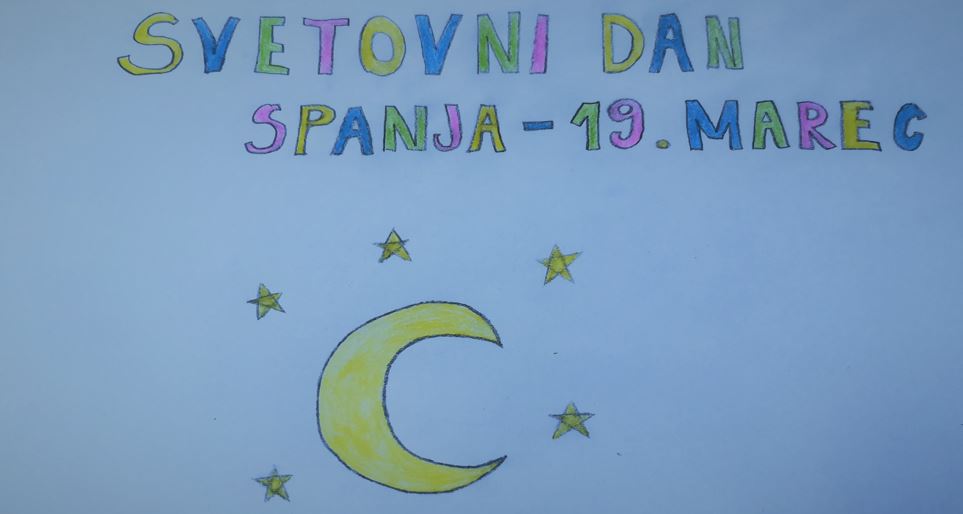 SVETOVNI DAN
SPANJA - 19. MAREC